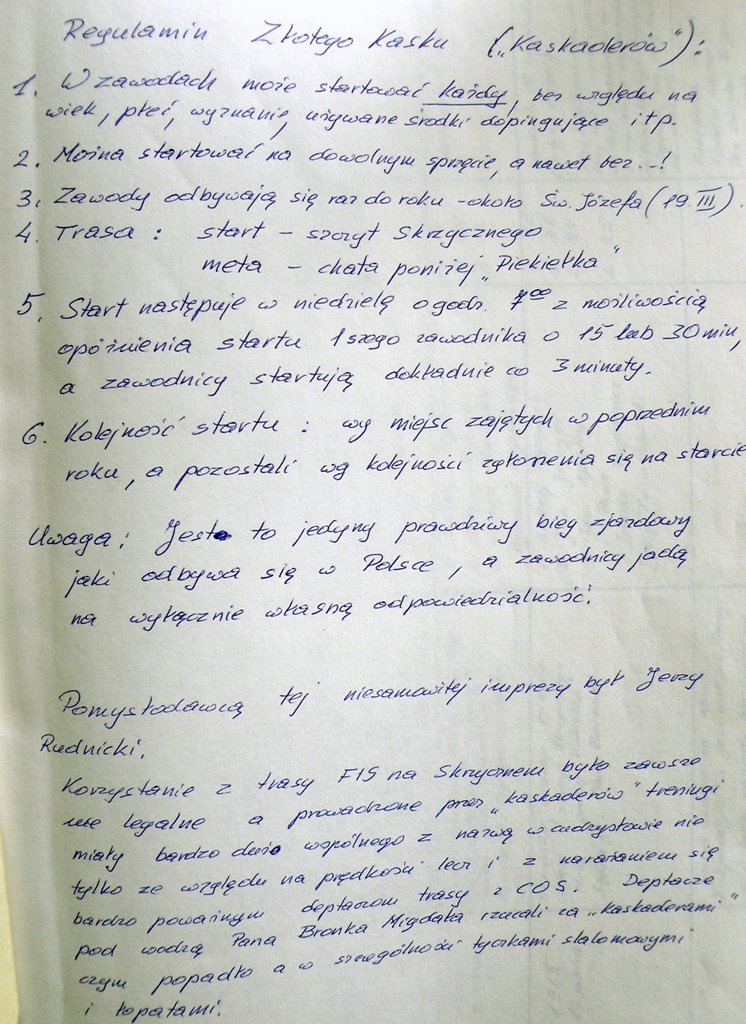 Regulamin Złotego Kasku („Kaskaderów"):
1. W zawodach może startować każdy, bez względu na
wiek, płeć, wyznanie, używane środki dopingujące itp.
2. Można startować na dowolnym sprzęcie, a nawet bez...!
3. Zawody odbywają się raz do roku - około Św. Józefa (19.III).
4. Trasa: start - szczyt Skrzycznego
meta - chata poniżej „Piekiełka"
5. Start następuje w niedzielę o godz. 7⁰⁰ z możliwością
opóźnienia startu 1szego zawodnika o 15 lub 30 min,
a zawodnicy startują dokładnie co 3 minuty.
6. Kolejność startu: wg miejsc zajętych w poprzednim
roku, a pozostali wg kolejności zgłoszenia się na starcie
Uwaga: Jest to jedyny prawdziwy bieg zjazdowy
jaki odbywa się w Polsce, a zawodnicy jadą
na wyłącznie własną odpowiedzialność!
Pomysłodawcą tej niesamowitej imprezy był Jerzy
Rudnicki.
Korzystanie z trasy FIS na Skrzycznem było zawsze
legalne a prowadzone przez „kaskaderów" treningi
miały bardzo dużo wspólnego z nazwą w cudzysłowie nie
tylko ze względu na prędkości lecz i z narażaniem się
bardzo poważnym deptaczom trasy z COS. Deptacze
pod wodzą Pana Bronka Migdała rzucali za „kaskaderami"
czym popadło a w szczególności tyczkami slalomowymi
i łopatami.